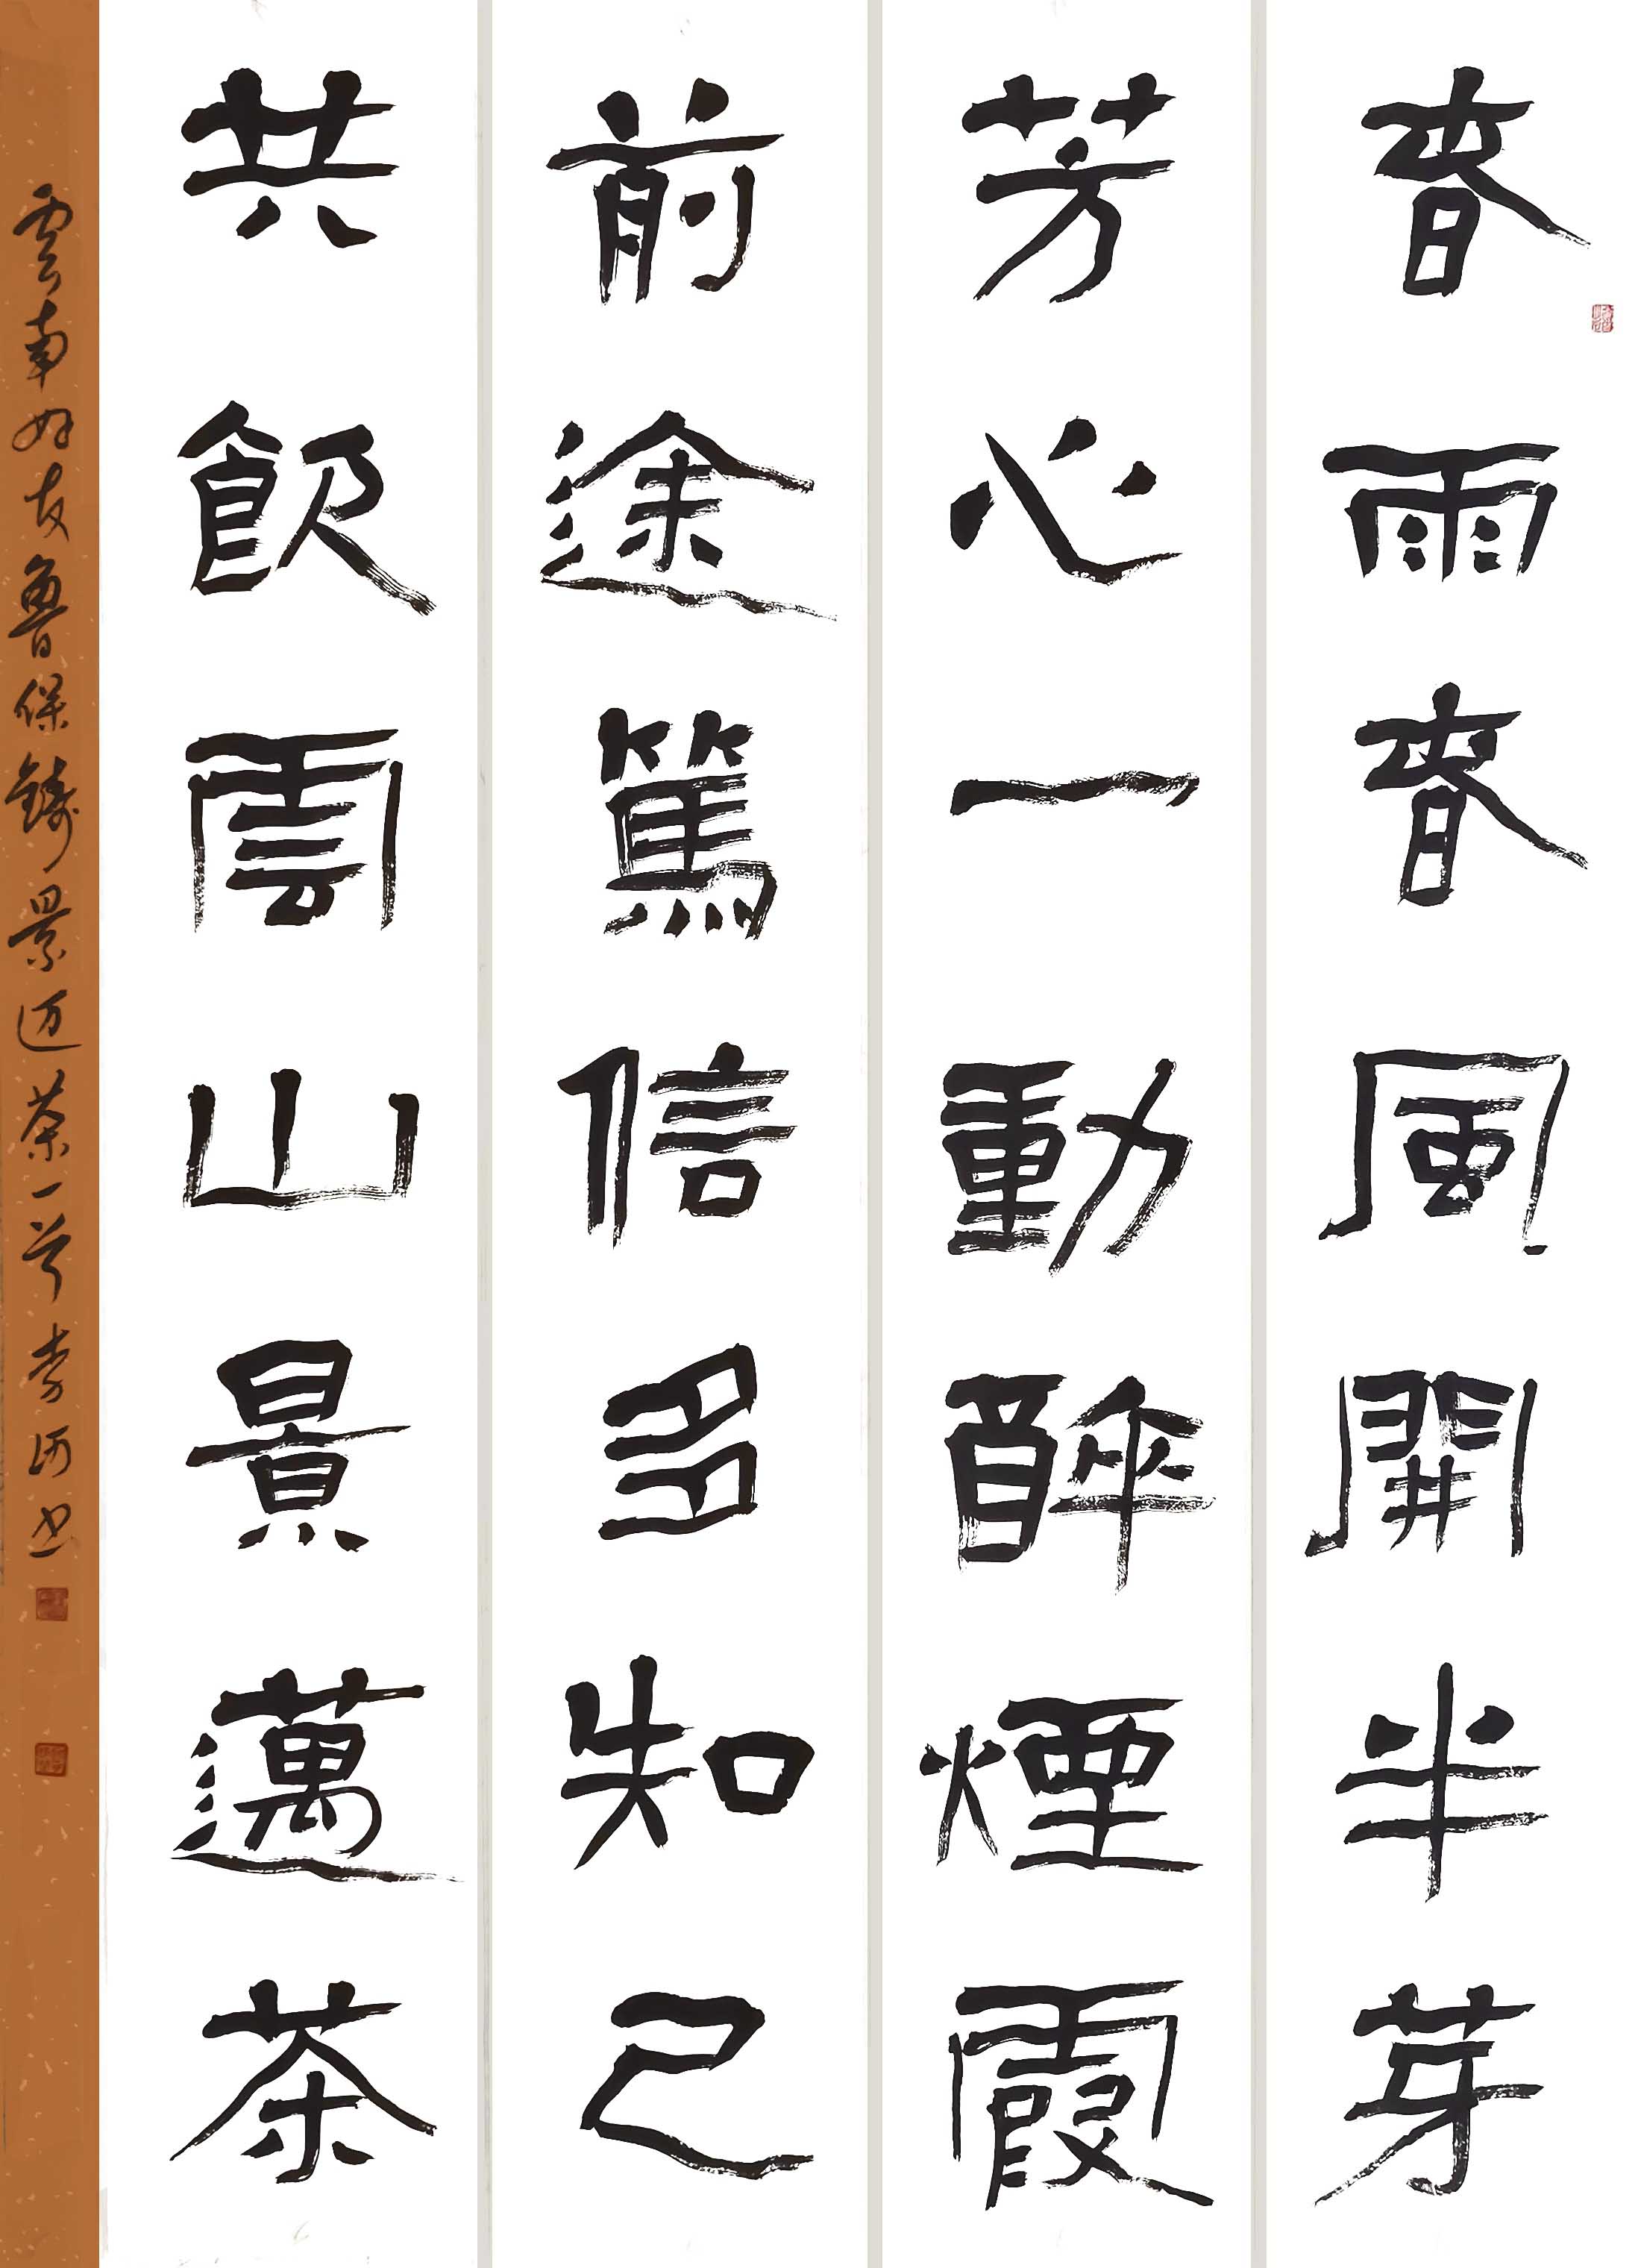 春雨春風開半芽
芳心一動醉煙霞
前途篤信多知己
共飲雲山景邁茶
雲南好友魯保鑄景迈茶一号李河书